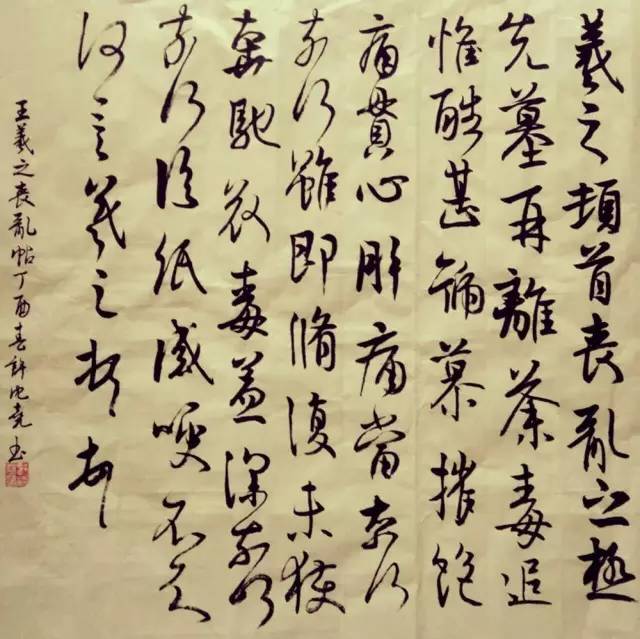 羲之頓首喪亂之極
先墓再離荼毒追
惟酷甚號慕摧絕
痛貫心肝痛當奈何
奈何雖即脩復未獲
奔馳哀毒益深奈何
奈何臨紙感哽不知
何言羲之頓首頓首
王羲之喪亂帖丁酉春許堯書